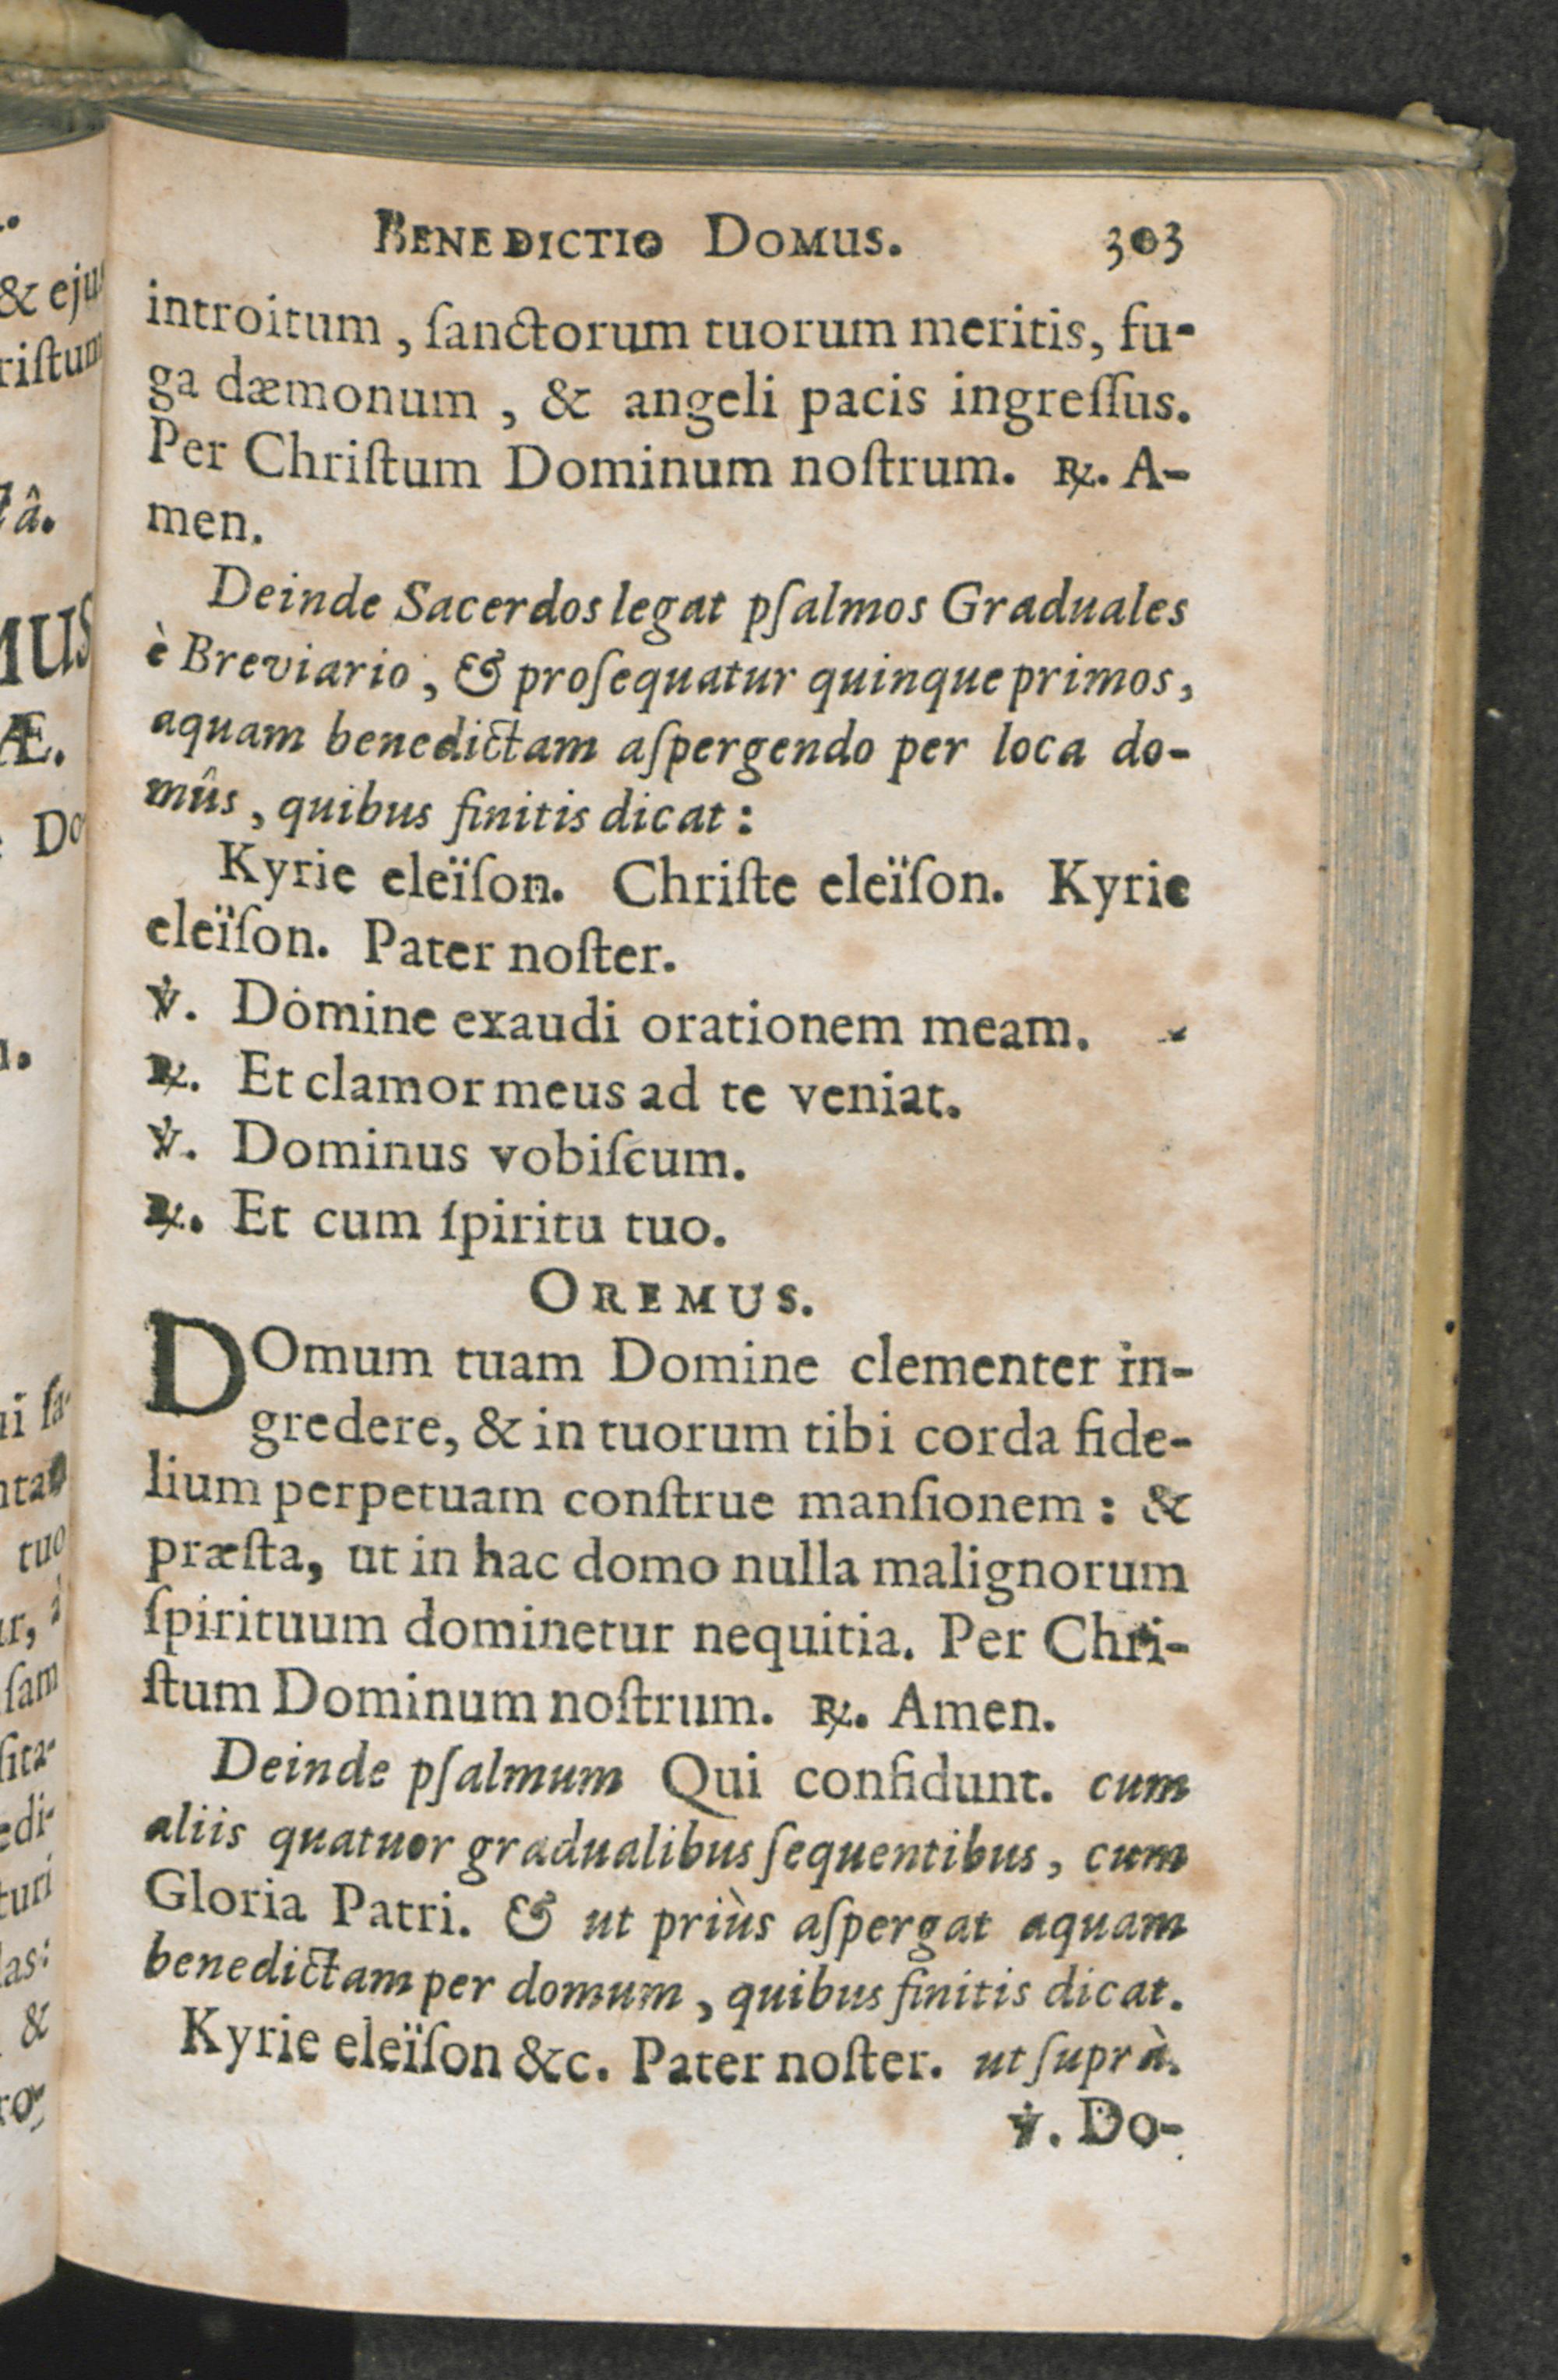 BENEDICTIO DOMUS. 303
introitum, ſanctorum tuorum meritis, fu-
ga dæmonum, & angeli pacis ingreſſus.
Per Chriſtum Dominum noſtrum. ℟. A-
men.
Deinde Sacerdos legat pſalmos Graduales
è Breviario, & proſequatur quinque primos,
aquam benedictam aſpergendo per loca do-
mûs, quibus finitis dicat:
Kyrie eleïſon. Chriſte eleïſon. Kyrie
eleïſon. Pater noſter.
℣. Domine exaudi orationem meam.
℟. Et clamor meus ad te veniat.
℣. Dominus vobiſcum.
℟. Et cum ſpiritu tuo.
OREMUS.
DOmum tuam Domine clementer in-
gredere, & in tuorum tibi corda fide-
lium perpetuam conſtrue manſionem: &
præſta, ut in hac domo nulla malignorum
ſpirituum dominetur nequitia. Per Chri-
ſtum Dominum noſtrum. ℟. Amen.
Deinde pſalmum Qui confidunt. cum
aliis quatuor gradualibus ſequentibus, cum
Gloria Patri. & ut priùs aſpergat aquam
benedictam per domum, quibus finitis dicat.
Kyrie eleïſon &c. Pater noſter. ut ſuprà.
℣. Do-